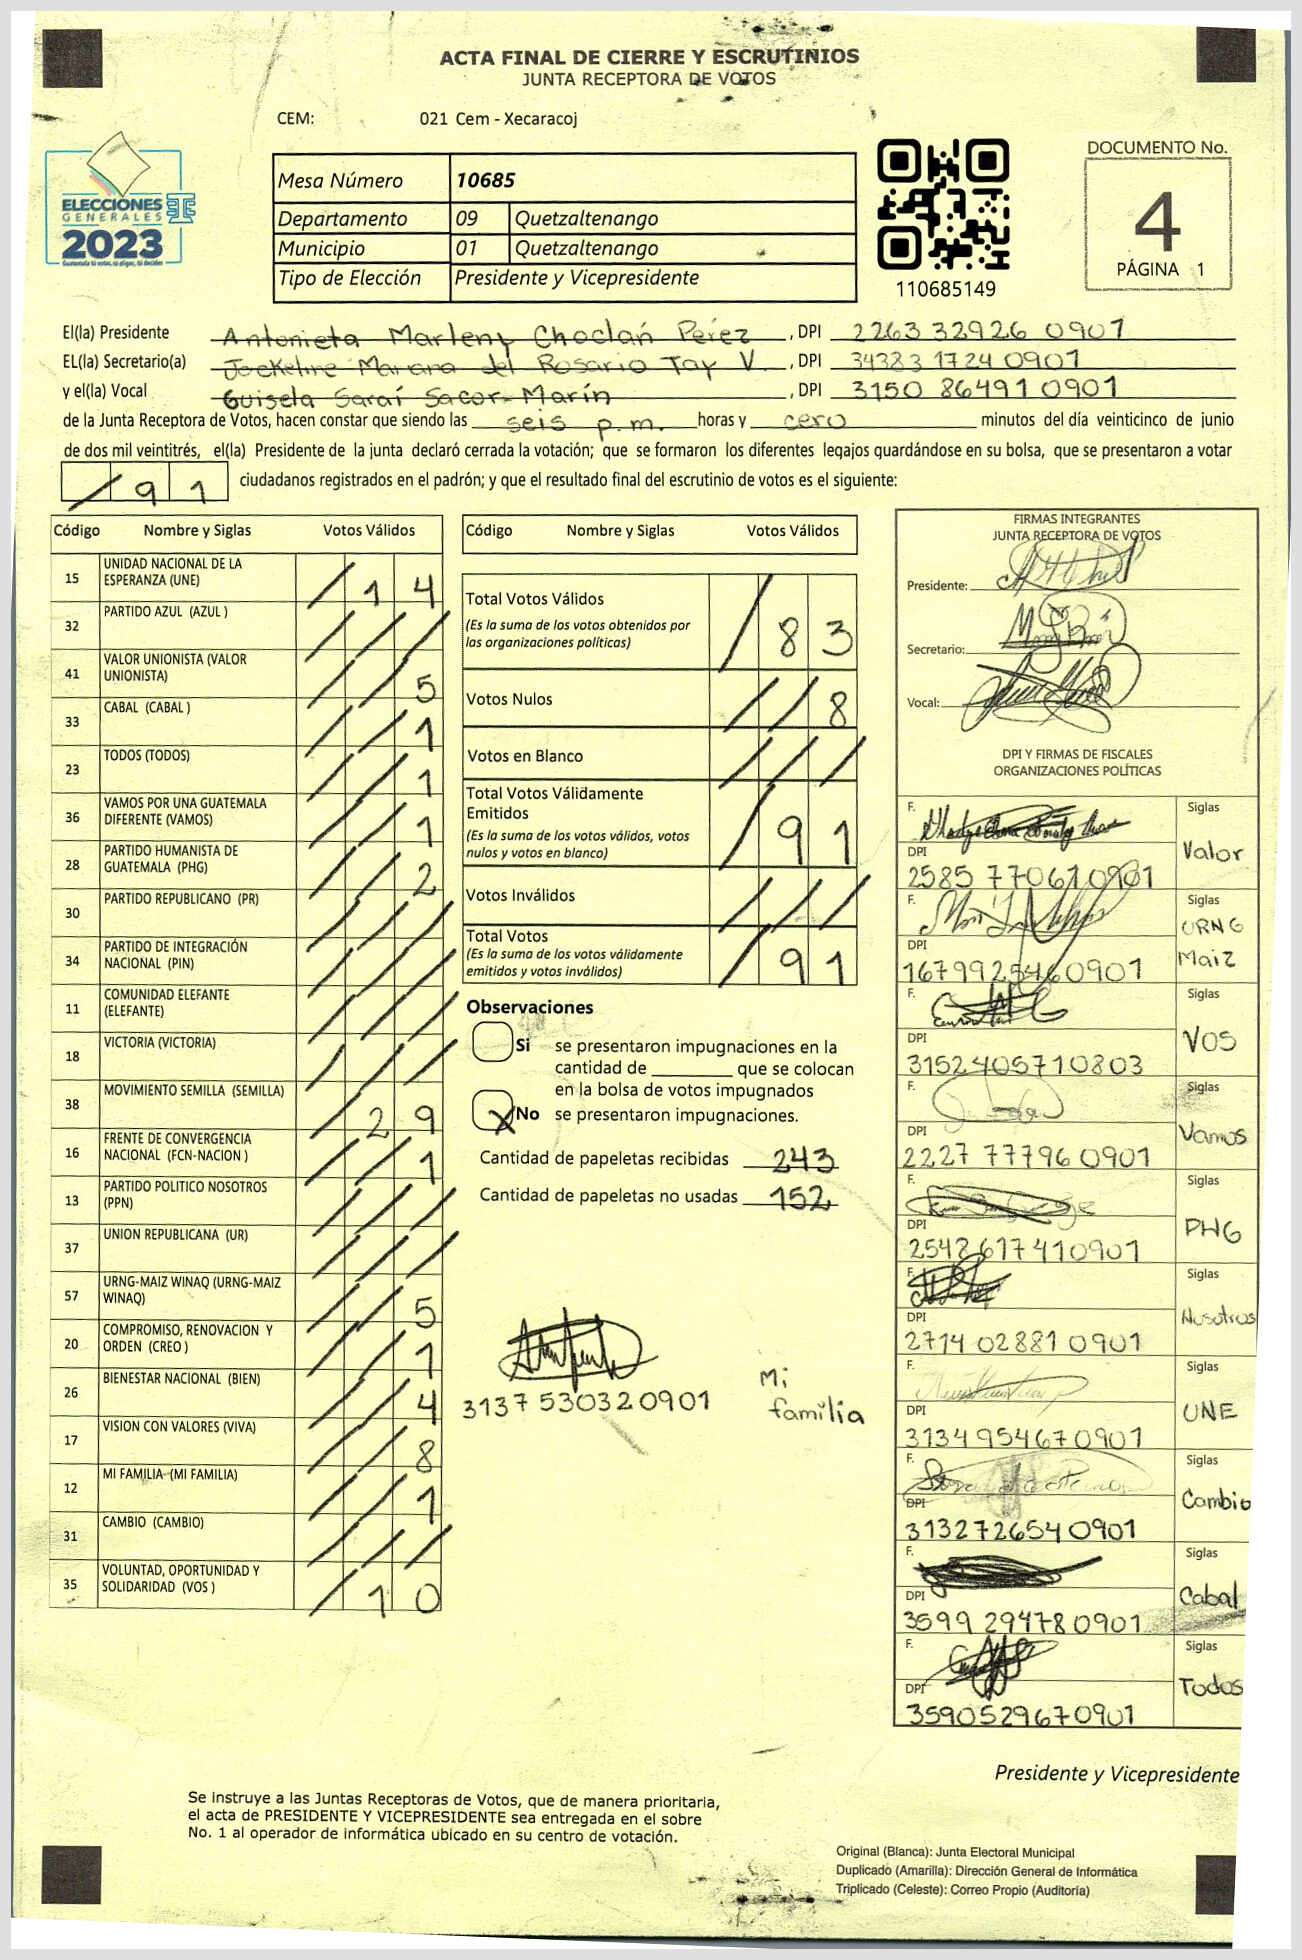 ACTA FINAL DE CIERRE Y ESCRUTINIOS
JUNTA RECEPTORA DE VOTOS
CEM: 021 Cem - Xecaracoj
ELECCIONES
GENERALES
2023
Mesa Número 10685
Departamento 09 Quetzaltenango
Municipio 01 Quetzaltenango
Tipo de Elección Presidente y Vicepresidente
110685149
DOCUMENTO No.
4
PÁGINA 1
El(la) Presidente Antonieta Marleny Choclán Pérez, DPI 2263 32926 0901
EL(la) Secretario(a) Jackeline Mariana del Rosario Tay V., DPI 34383 1724 0901
y el(la) Vocal Guisela Saraí Sacor Marín, DPI 3150 86491 0901
de la Junta Receptora de Votos, hacen constar que siendo las seis p.m. horas y cero minutos del día veinticinco de junio
de dos mil veintitrés, el(la) Presidente de la junta declaró cerrada la votación; que se formaron los diferentes legajos guardándose en su bolsa, que se presentaron a votar
/ 9 1 ciudadanos registrados en el padrón; y que el resultado final del escrutinio de votos es el siguiente:
Código Nombre y Siglas Votos Válidos
15 UNIDAD NACIONAL DE LA ESPERANZA (UNE) / 1 4
32 PARTIDO AZUL (AZUL ) / / /
41 VALOR UNIONISTA (VALOR UNIONISTA) / / 5
33 CABAL (CABAL ) / / 1
23 TODOS (TODOS) / / 1
36 VAMOS POR UNA GUATEMALA DIFERENTE (VAMOS) / / 1
28 PARTIDO HUMANISTA DE GUATEMALA (PHG) / / 2
30 PARTIDO REPUBLICANO (PR) / / /
34 PARTIDO DE INTEGRACIÓN NACIONAL (PIN) / / /
11 COMUNIDAD ELEFANTE (ELEFANTE) / / /
18 VICTORIA (VICTORIA) / / /
38 MOVIMIENTO SEMILLA (SEMILLA) / 2 9
16 FRENTE DE CONVERGENCIA NACIONAL (FCN-NACION ) / / 1
13 PARTIDO POLITICO NOSOTROS (PPN) / / /
37 UNION REPUBLICANA (UR) / / /
57 URNG-MAIZ WINAQ (URNG-MAIZ WINAQ) / / 5
20 COMPROMISO, RENOVACION Y ORDEN (CREO ) / / 1
26 BIENESTAR NACIONAL (BIEN) / / 4
17 VISION CON VALORES (VIVA) / / 8
12 MI FAMILIA (MI FAMILIA) / / 1
31 CAMBIO (CAMBIO) / / /
35 VOLUNTAD, OPORTUNIDAD Y SOLIDARIDAD (VOS ) / 1 0
Código Nombre y Siglas Votos Válidos
Total Votos Válidos / 8 3
(Es la suma de los votos obtenidos por
las organizaciones políticas)
Votos Nulos / / 8
Votos en Blanco / / /
Total Votos Válidamente
Emitidos / 9 1
(Es la suma de los votos válidos, votos
nulos y votos en blanco)
Votos Inválidos / / /
Total Votos / 9 1
(Es la suma de los votos válidamente
emitidos y votos inválidos)
Observaciones
Si se presentaron impugnaciones en la
cantidad de ________ que se colocan
en la bolsa de votos impugnados
X No se presentaron impugnaciones.
Cantidad de papeletas recibidas 243
Cantidad de papeletas no usadas 152
3137 53032 0901
Mi
familia
FIRMAS INTEGRANTES
JUNTA RECEPTORA DE VOTOS
Presidente:
Secretario:
Vocal:
DPI Y FIRMAS DE FISCALES
ORGANIZACIONES POLÍTICAS
F. Siglas
DPI Valor
2585 77061 0901
F. Siglas
URNG
DPI Maiz
1679925460901
F. Siglas
DPI VOS
3152405710803
F. Siglas
DPI Vamos
2227 77796 0901
F. Siglas
DPI PHG
2542617410901
F. Siglas
DPI Nosotros
2714 02881 0901
F. Siglas
DPI UNE
3134 95467 0901
F. Siglas
DPI Cambio
3132726540901
F. Siglas
DPI Cabal
3599 29478 0901
F. Siglas
DPI Todos
3590529670901
Presidente y Vicepresidente
Se instruye a las Juntas Receptoras de Votos, que de manera prioritaria,
el acta de PRESIDENTE Y VICEPRESIDENTE sea entregada en el sobre
No. 1 al operador de informática ubicado en su centro de votación.
Original (Blanca): Junta Electoral Municipal
Duplicado (Amarilla): Dirección General de Informática
Triplicado (Celeste): Correo Propio (Auditoría)